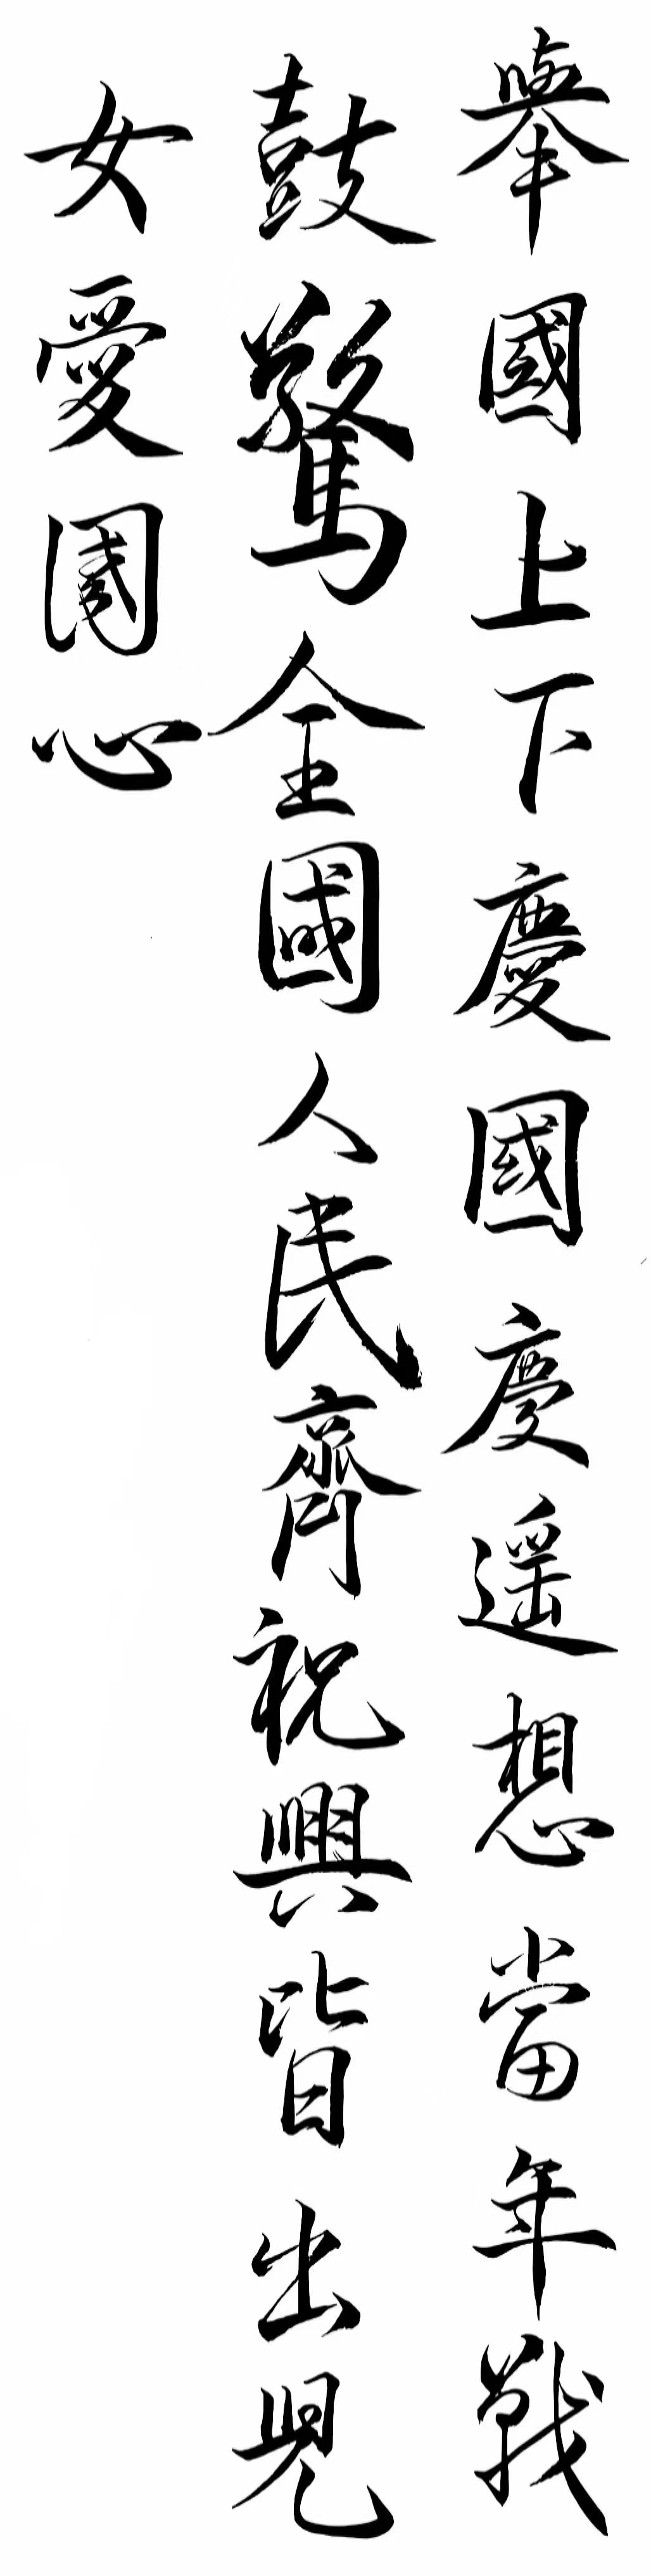 舉國上下慶國慶遥想當年戰
鼓驚全國人民齊祝興皆出兒
女愛國心